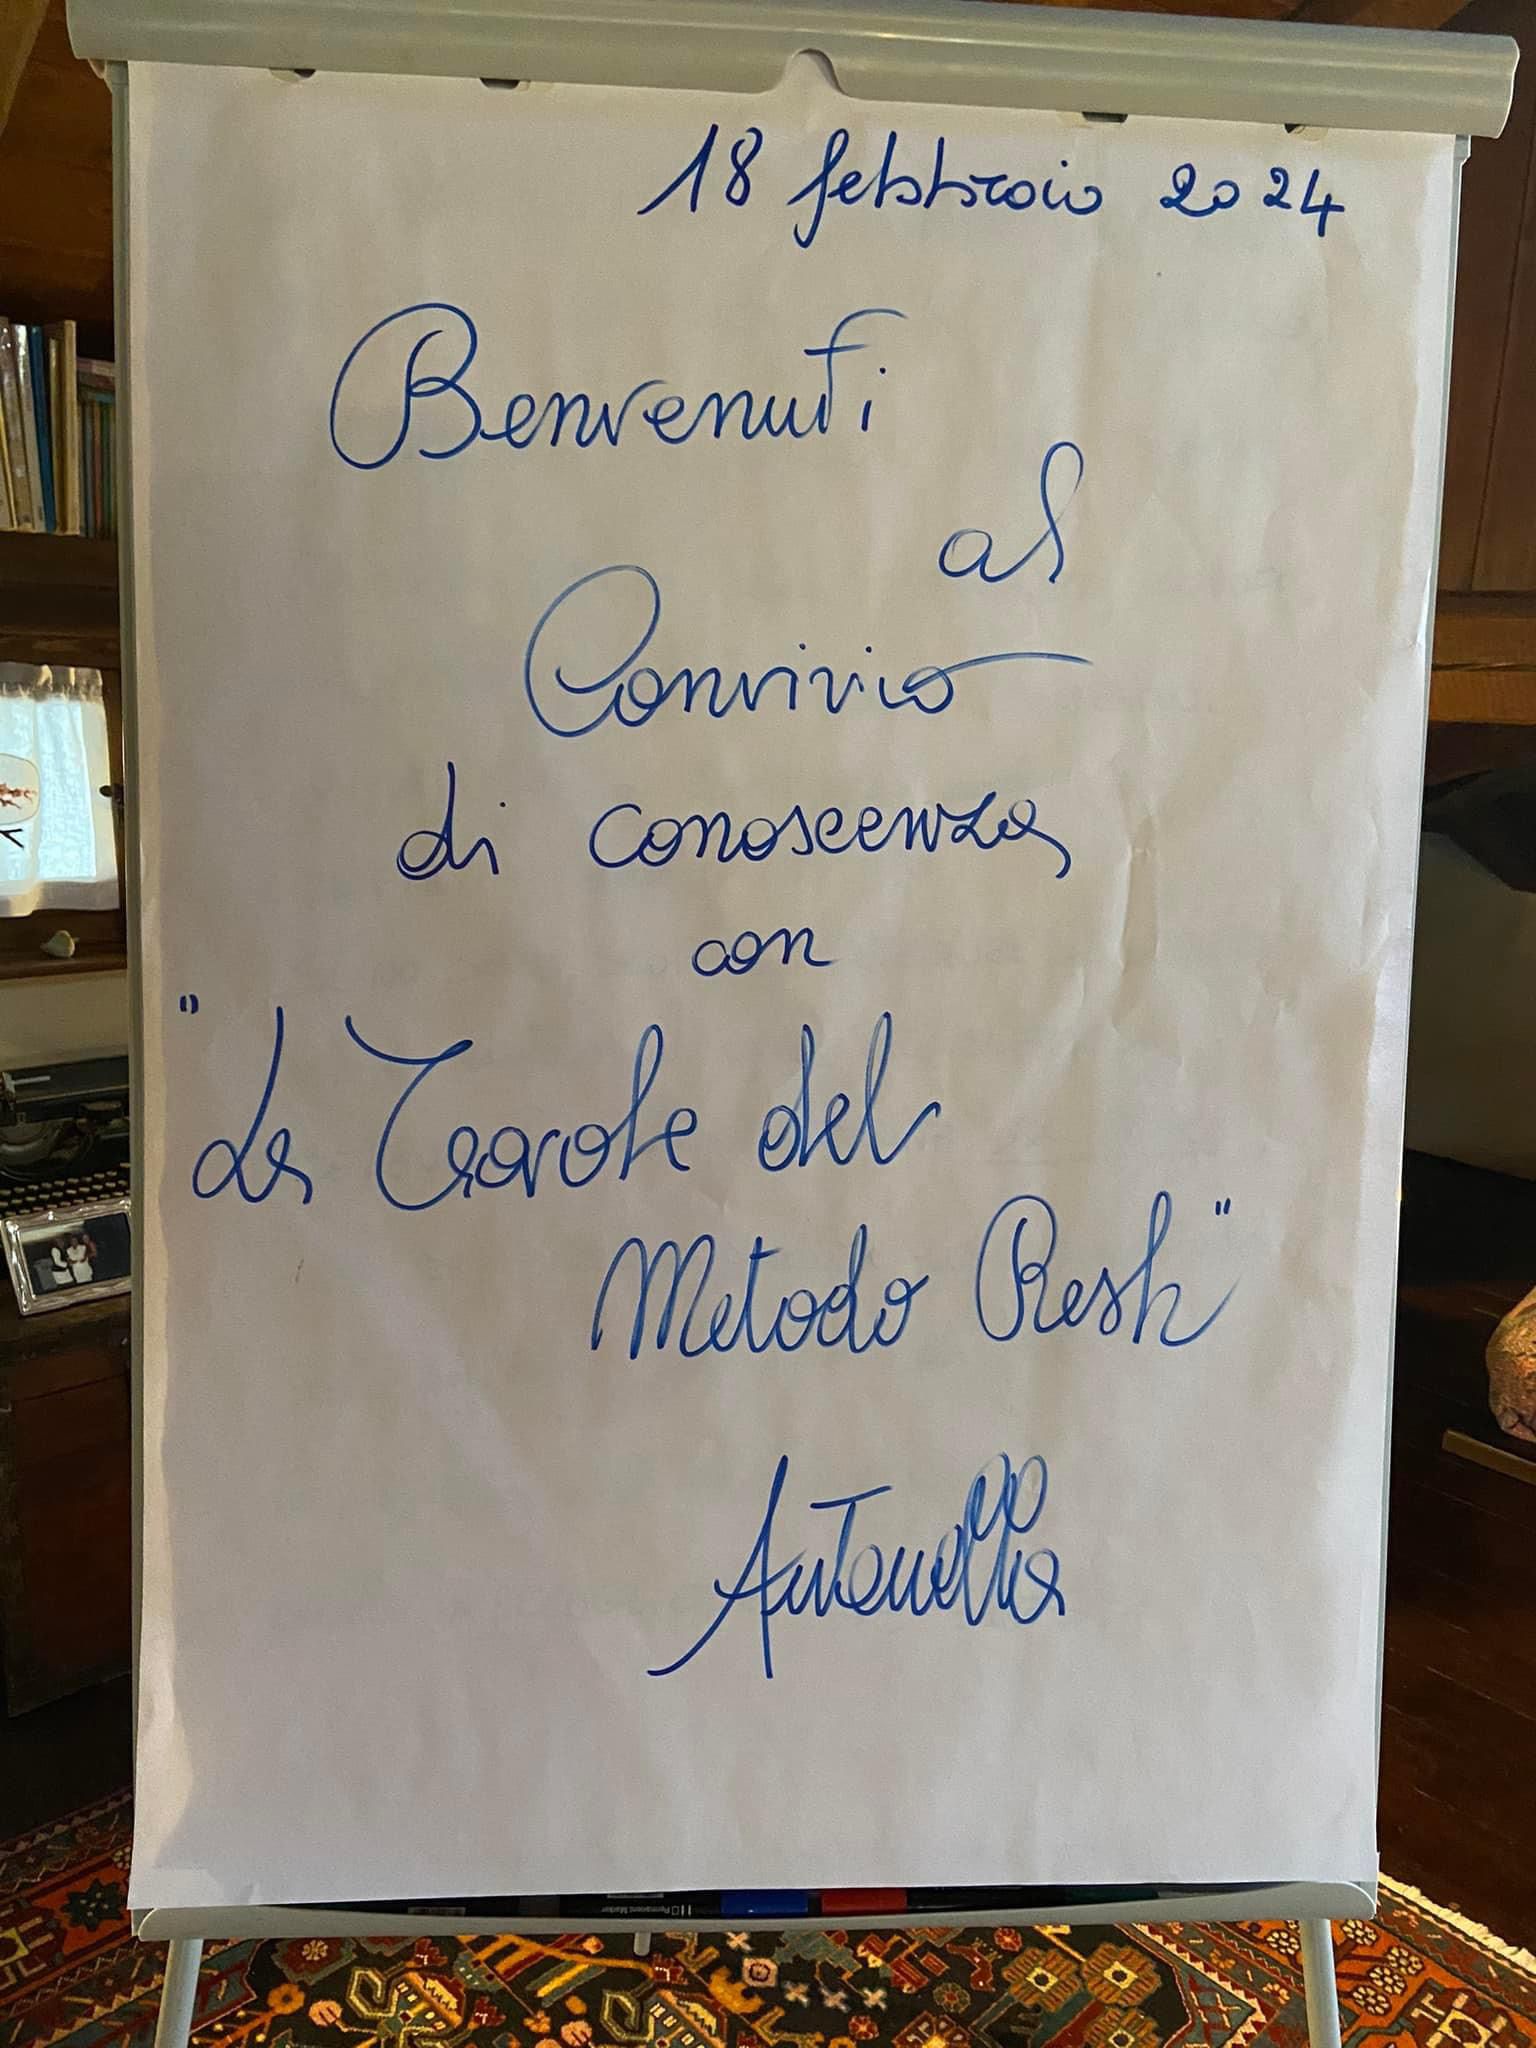 18 febbraio 2024
Benvenuti
al
Convivio
di conoscenza
con
"Le Tavole del
Metodo Resh"
Antonella
Permanent Marker